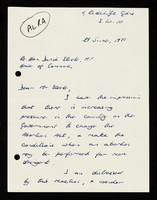 ALRA
S.W. 10
21 June, 1971
Rt. Hon. David Steel, MP
House of Commons
Dear Mr. Steel,
I have the impression
that there is increasing
pressure in the country on the
Government to change the
Abortion Act, & made the
conditions when an abortion
may be performed far more
stringent.
I am distressed
by this reaction, &